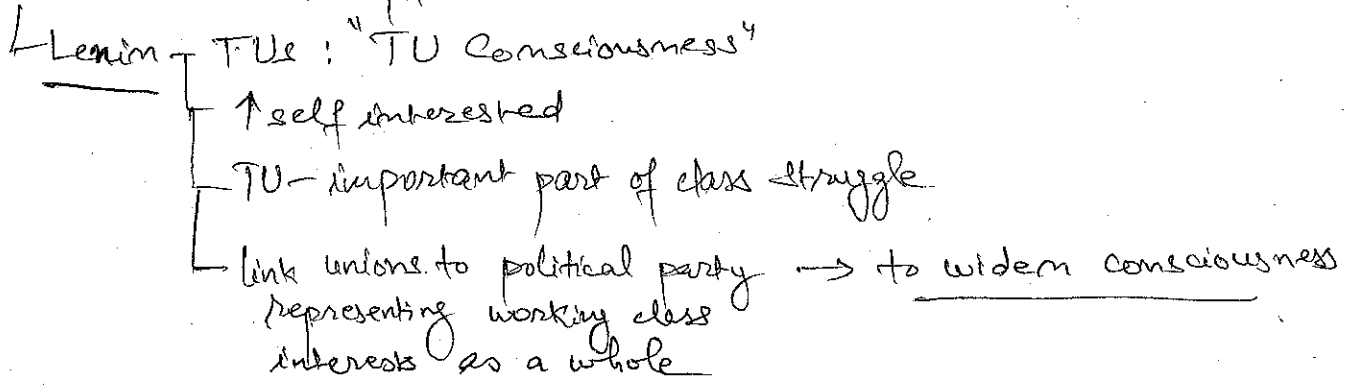 Lenin - TUs : "TU Consciousness"
↑ self interested
TU - important part of class struggle
link unions to political party → to widen consciousness
representing working class
interests as a whole